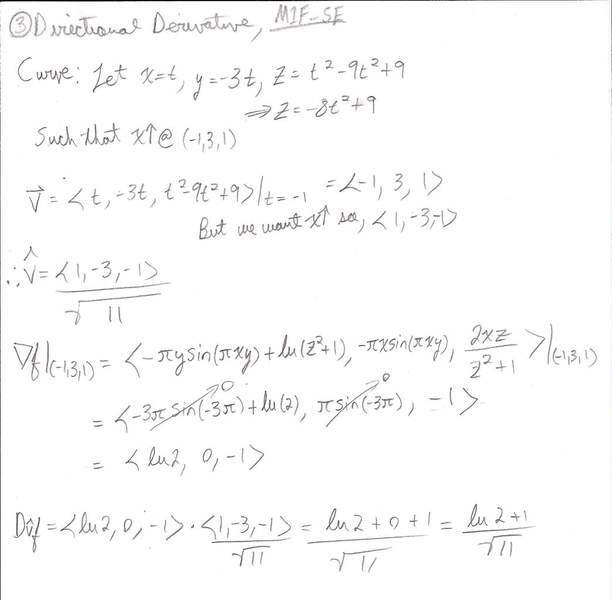 ③ Directional Derivative, M1F-SE
Curve: Let x=t, y=-3t, z=t²-9t²+9
⇒ z=-8t²+9
Such that x↑ @ (-1,3,1)
v⃗ = <t, -3t, t²-9t²+9>|t=-1 = <-1, 3, 1>
But we want x↑ so, <1,-3,-1>
∴ v̂ = <1,-3,-1> / √11
∇f|(-1,3,1) = <-πysin(πxy)+ln(z²+1), -πxsin(πxy), 2xz/z²+1>|(-1,3,1)
= <-3πsin(-3π)+ln(2), πsin(-3π), -1>
= <ln2, 0, -1>
Dv̂f = <ln2, 0, -1> · <1,-3,-1>/√11 = ln2+0+1/√11 = ln2+1/√11